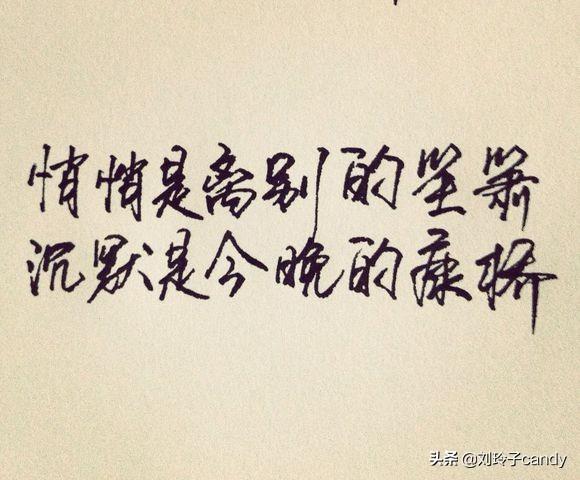 悄悄是离别的笙箫
沉默是今晚的康桥
头条 @刘玲子candy